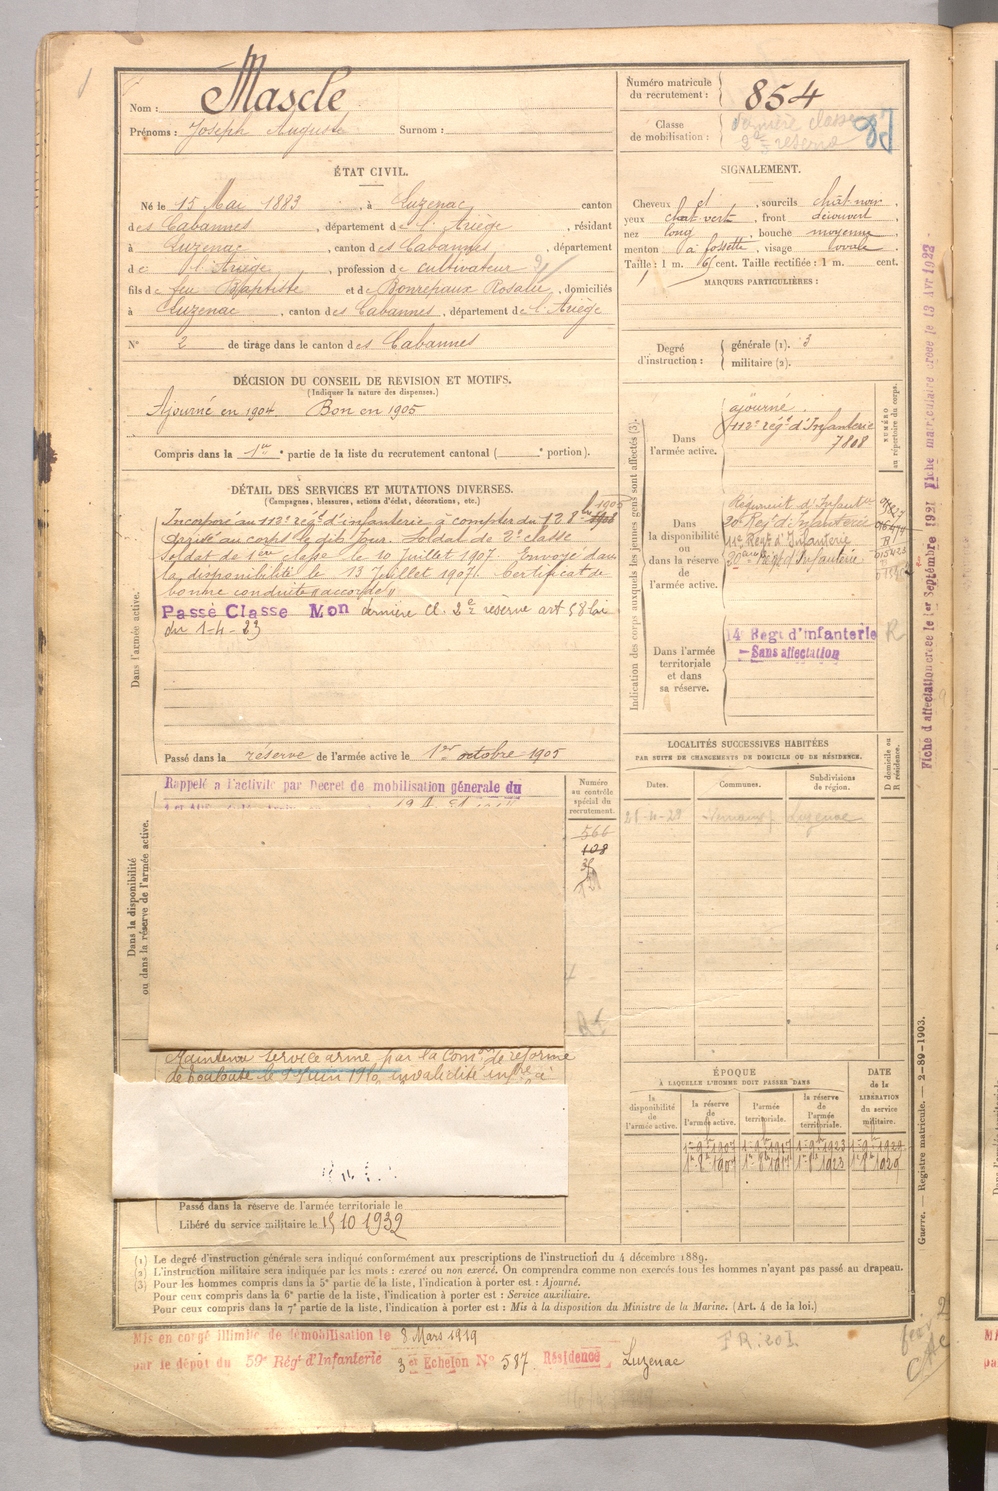 Nom : Mascle
Prénoms : Joseph Auguste Surnom :
Numéro matricule du recrutement : 854
Classe de mobilisation : dernière classe 2e réserve
ÉTAT CIVIL.
Né le 15 Mai 1883, à Luzenac, canton
des Cabannes, département de l'Ariège, résidant
à Luzenac, canton des Cabannes, département
de l'Ariège, profession de cultivateur
fils de feu Baptiste et de Bonrepaux Rosalie, domiciliés
à Luzenac, canton des Cabannes, département de l'Ariège
N° 2 de tirage dans le canton des Cabannes
SIGNALEMENT.
Cheveux et, sourcils chât noir,
yeux chât vert, front découvert
nez long, bouche moyenne
menton à fossette, visage ovale
Taille : 1 m. 61 cent. Taille rectifiée : 1 m. cent.
MARQUES PARTICULIÈRES :
Degré d'instruction : générale (1). 3
militaire (2).
DÉCISION DU CONSEIL DE REVISION ET MOTIFS.
(Indiquer la nature des dispenses.)
Ajourné en 1904 Bon en 1905
Compris dans la 1re partie de la liste du recrutement cantonal ( e portion).
DÉTAIL DES SERVICES ET MUTATIONS DIVERSES.
(Campagnes, blessures, actions d'éclat, décorations, etc.)
Dans l'armée active.
Incorporé au 112e rég.t d'infanterie à compter du 8 1905
arrivé au corps le dit jour. Soldat de 2e classe
Soldat de 1ère classe le 10 Juillet 1907. Envoyé dans
la disponibilité le 13 Juillet 1907. Certificat de
bonne conduite "accordé"
Passé Classe Mon dernière Cl. 2e réserve art 58 loi
du 1-4-23
Passé dans la réserve de l'armée active le 1er octobre 1905
Indication des corps auxquels les jeunes gens sont affectés (3).
NUMÉRO au répertoire du corps.
Dans l'armée active.
ajourné.
112e rég.t d'Infanterie
7808
Dans la disponibilité ou dans la réserve de l'armée active.
Régiment d'Infant
20e Rég.t d'Infanterie
Rég.t d'Infanterie
20e Rég.t d'Infanterie
Dans l'armée territoriale et dans sa réserve.
14e Regt d'infanterie
Sans affectation
R
Fiche d'affectation créée le 1er Septembre 1921 Fiche matriculaire créée le 13 Avr 1922
LOCALITÉS SUCCESSIVES HABITÉES
PAR SUITE DE CHANGEMENTS DE DOMICILE OU DE RÉSIDENCE.
Dates. Communes. Subdivisions de région. D domicile ou R résidence.
Luzenac
Dans la disponibilité ou dans la réserve de l'armée active.
Rappelé a l'activité par Decret de mobilisation génerale du
Numéro au contrôle spécial du recrutement.
566
108
Maintenu service armé par la Comon de réforme
de Toulouse le Juin 1910, invalidité infre à
ÉPOQUE
À LAQUELLE L'HOMME DOIT PASSER DANS
la disponibilité de l'armée active. la réserve de l'armée active. l'armée territoriale. la réserve de l'armée territoriale. DATE de la LIBÉRATION du service militaire.
Passé dans la réserve de l'armée territoriale le
Libéré du service militaire le 15 10 1932
Guerre. — Registre matricule. — 2-89-1903.
(1) Le degré d'instruction générale sera indiqué conformément aux prescriptions de l'instruction du 4 décembre 1889.
(2) L'instruction militaire sera indiquée par les mots : exercé ou non exercé. On comprendra comme non exercés tous les hommes n'ayant pas passé au drapeau.
(3) Pour les hommes compris dans la 5e partie de la liste, l'indication à porter est : Ajourné.
Pour ceux compris dans la 6e partie de la liste, l'indication à porter est : Service auxiliaire.
Pour ceux compris dans la 7e partie de la liste, l'indication à porter est : Mis à la disposition du Ministre de la Marine. (Art. 4 de la loi.)
Mis en congé illimité de démobilisation le 8 Mars 1919
par le dépôt du 59e Rég.t d'Infanterie 3 et Echelon N° 587 Résidence Luzenac